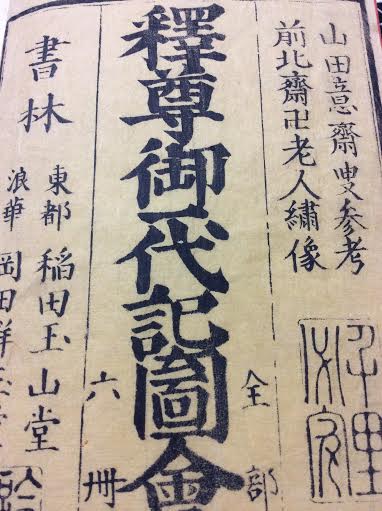 山田意齋叟参考
前北齋卍老人繡像
釋尊御一代記圖會
全部
六冊
書林
東都 稲田玉山堂
浪華 岡田群玉